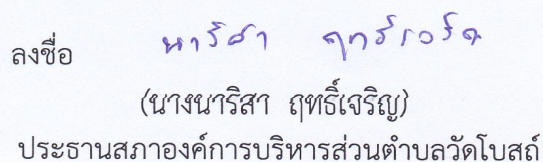 ลงชื่อ นาริสา ฤทธิ์เจริญ
(นางนาริสา ฤทธิ์เจริญ)
ประธานสภาองค์การบริหารส่วนตำบลวัดโบสถ์